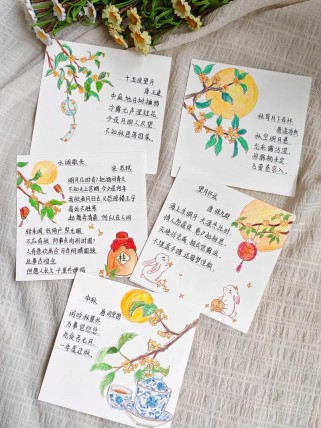 十五夜望月
唐·王建
中庭地白树栖鸦
冷露无声湿桂花
今夜月明人尽望
不知秋思落谁家
秋宵月下有怀
唐 孟浩然
秋空明月悬
光彩露沾湿
惊鹊栖未定
飞萤卷帘入
水调歌头
宋·苏轼
明月几时有?把酒问青天
不知天上宫阙 今夕是何年
我欲乘风归去又恐琼楼玉宇
高处不胜寒
起舞弄清影 何似在人间
转朱阁 低绮户 照无眠
不应有恨 何事长向别时圆?
人有悲欢离合 月有阴晴圆缺
此事古难全
但愿人长久 千里共婵娟
桂
望月怀远
唐 张九龄
海上生明月 天涯共此时
情人怨遥夜 竟夕起相思
灭烛怜光满 披衣觉露滋
不堪盈手赠 还寝梦佳期
中秋
唐 司空图
闲吟秋景外
万事觉悠悠
此夜若无月
一年虚过秋